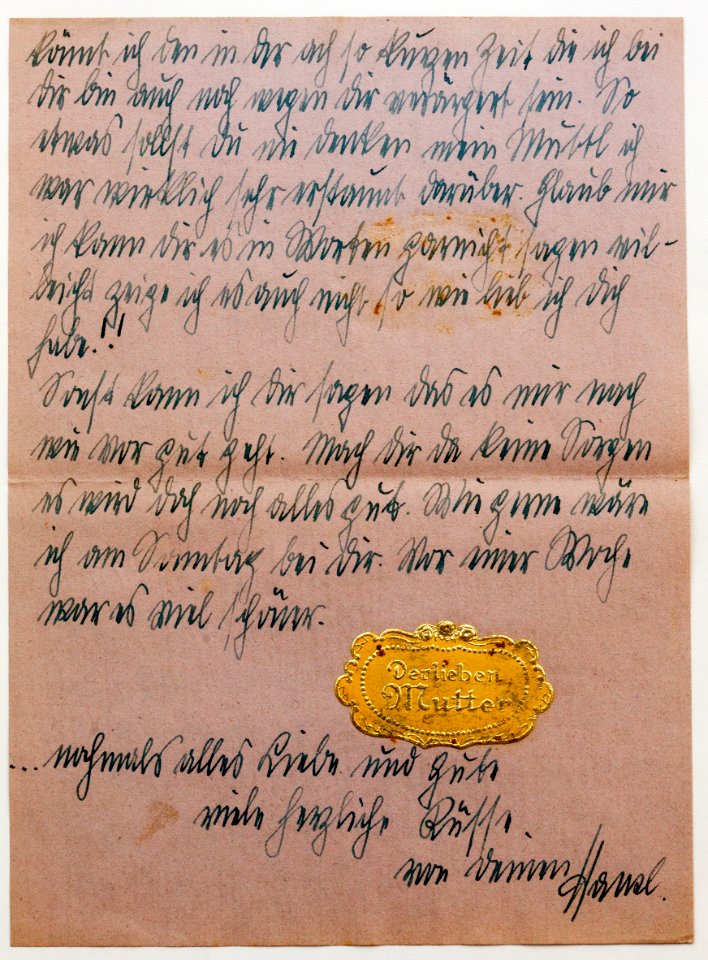 könnt ich den in der ach so kurzen Zeit die ich bei
dir bin auch noch wegen dir verärgert sein. So
etwas sollst du nie denken mein Muttl ich
war wirklich sehr erstaunt darüber. Glaub mir
ich kann dir es in Worten garnicht sagen vil-
leicht zeige ich es auch nicht so wie lieb ich dich
habe.!!
Sonst kann ich dir sagen das es mir nach
wie vor gut geht. Mach dir da keine Sorgen
es wird doch noch alles gut. Wie gerne wäre
ich am Sonntag bei dir. Vor einer Woche
war es viel schöner.
Der lieben
Mutter
... nochmals alles Liebe und Gute
viele herzliche Küsse.
von deinem Hansl.